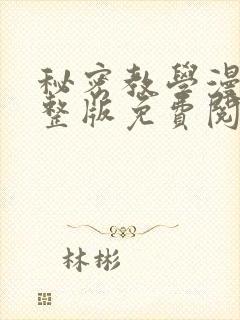 秘密教學漫
整版免費閱
林彬